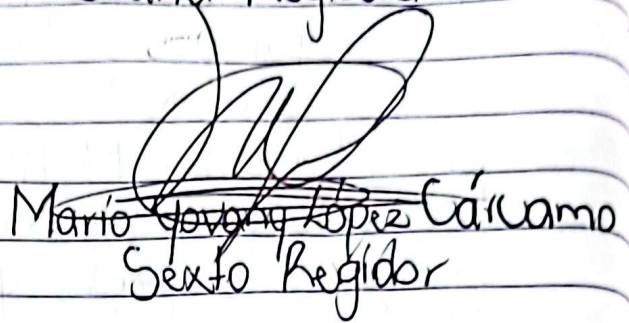 Mario Yovany López Cárcamo
Sexto Regidor